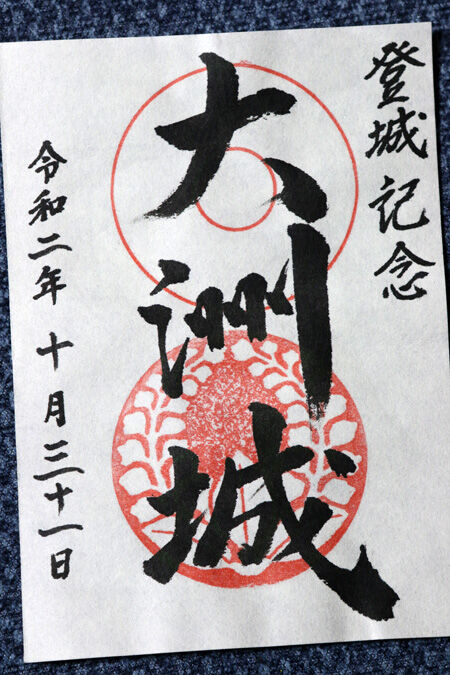 登城記念
大洲城
令和二年 十月三十一日